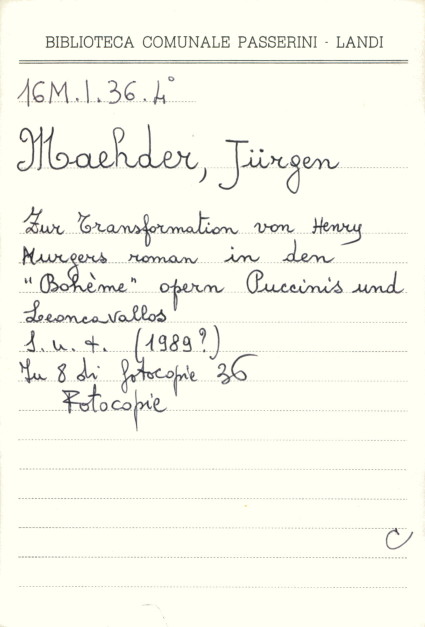 BIBLIOTECA COMUNALE PASSERINI - LANDI
16M.I.36.4°
Maehder, Jürgen
Zur Transformation von Henry
Murgers roman in den
"Bohème" opern Puccinis und
Leoncavallos
S.u.t. (1989?)
In 8 di fotocopie 36
Fotocopie
C